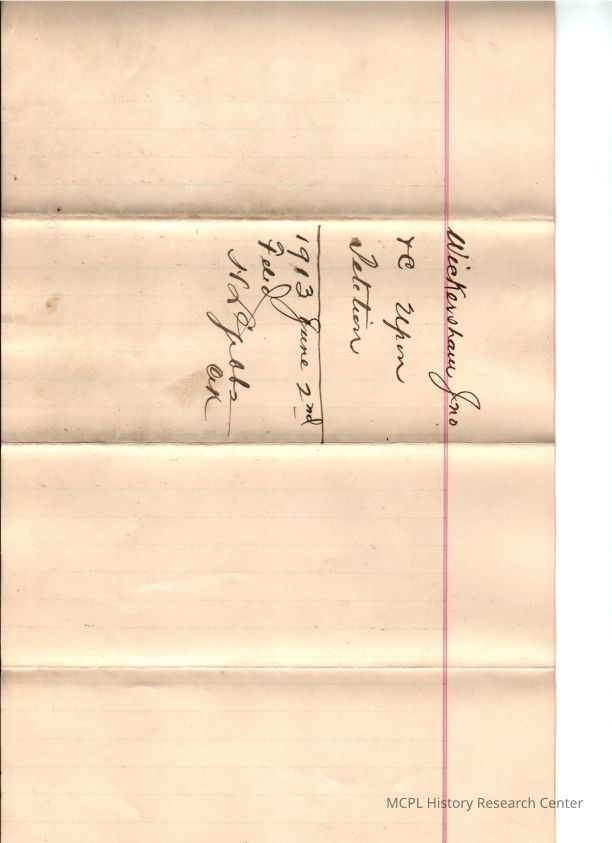 Wickersham Jno
vs Upon
Petition
1913 June 2nd
Filed
Clk
MCPL History Research Center